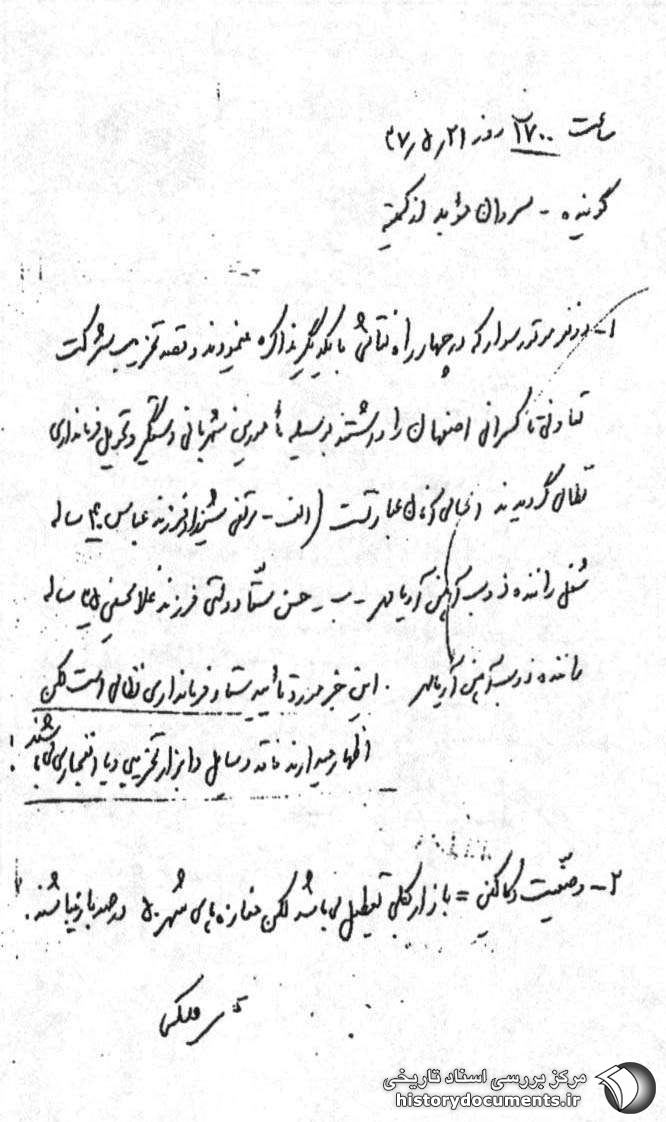 ساعت ۱۷۰۰ روز ۲۱ ر ۵ ر ۳۷
گوینده - سروان مؤید از کمیته
۱- دو نفر موتور سوار که در چهار راه نقاشی با یکدیگر مذاکره مینمودند و قصد تخریب شرکت
تعاونی تاکسرانی اصفهان را داشتند بوسیله مأمورین شهربانی دستگیر و تحویل فرمانداری
نظامی گردیدند اسامی آنان عبارتست (الف - مرتضی فرزند عباس ۳۰ ساله
شغل راننده ذوب آهن آریامهر - ب - حسن دولتی فرزند غلامحسین ۲۵ ساله
راننده ذوب آهن آریامهر . این خبر مورد تأیید ستاد فرمانداری نظامی است لکن
اظهار میدارند فاقد وسایل و ابزار تخریبی و یا انفجاری می باشند
۲- وضعیت دکاکین = بازار کلی تعطیل می باشد لکن مغازه های شهر ۵۰ درصد باز میباشند .
مرکز بررسی اسناد تاریخی
historydocuments.ir